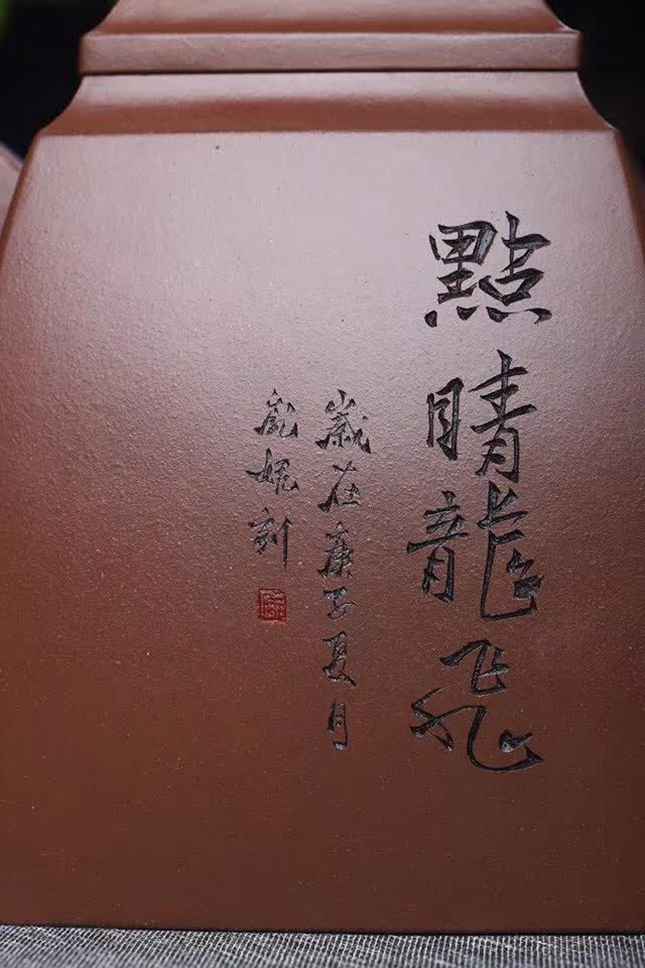 點睛龍飛
歲在庚子夏月
妮刻